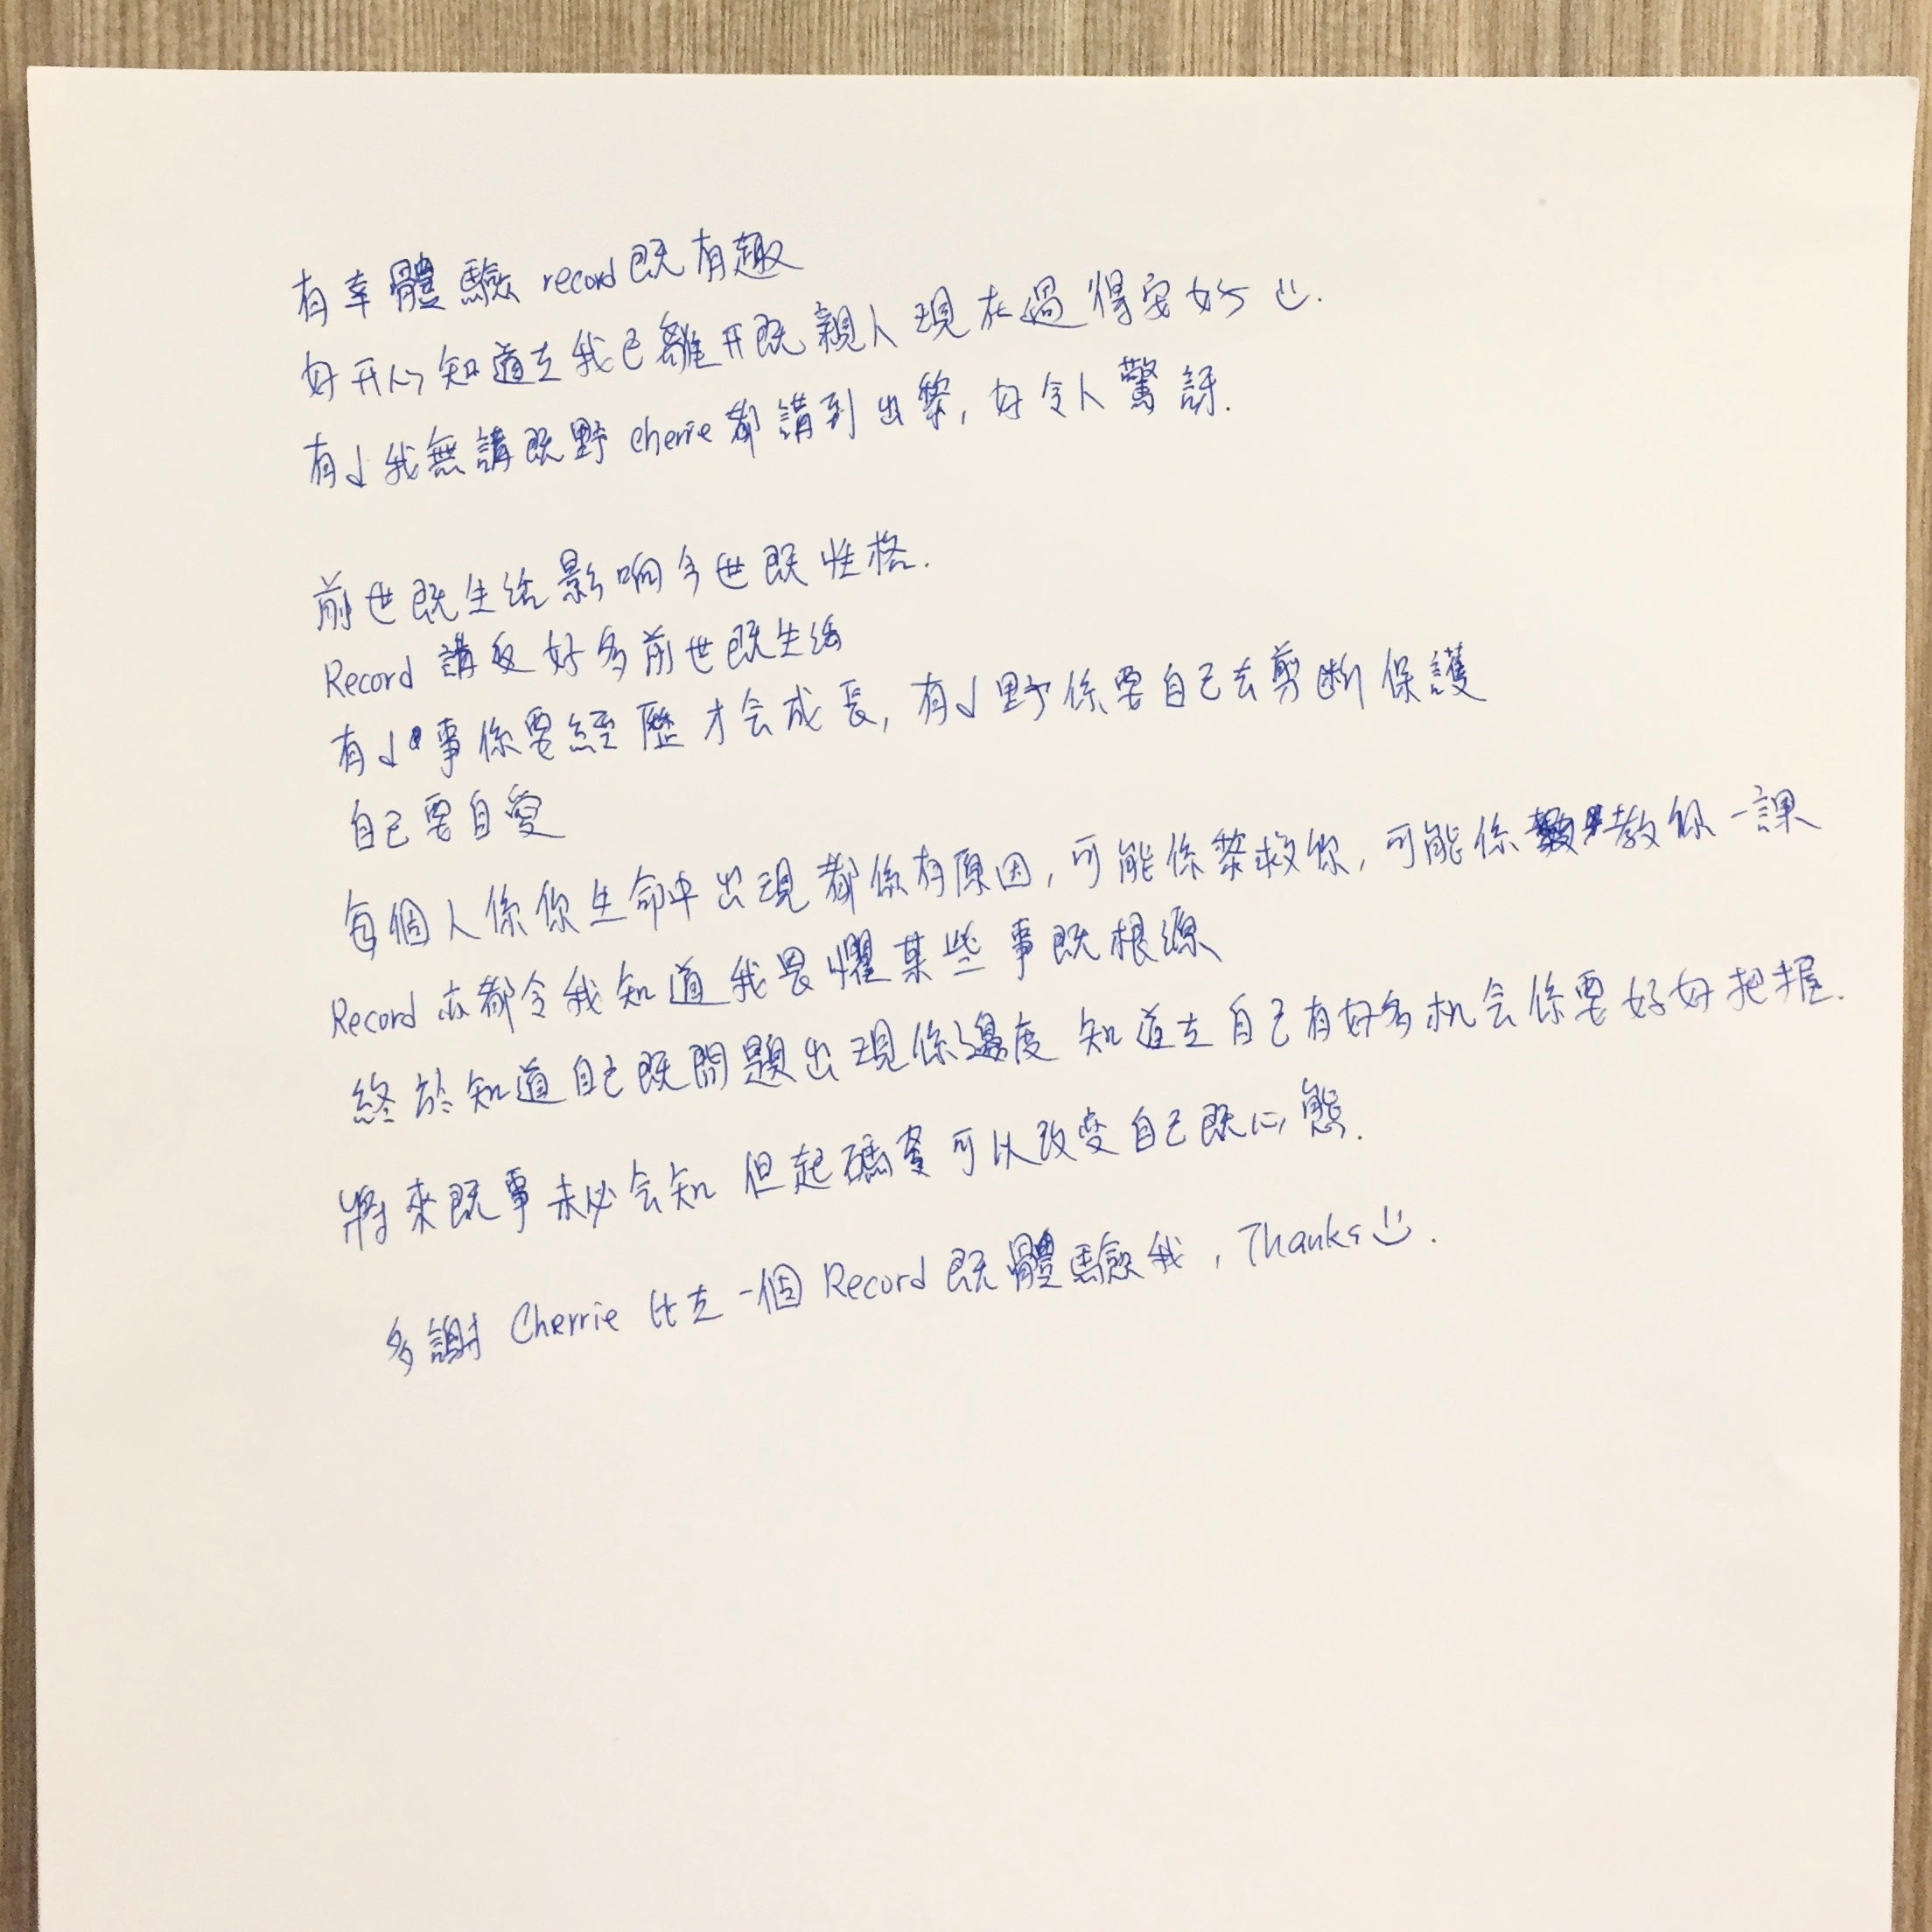 有幸體驗 record 既有趣
好开心知道左我已離开既親人現在過得安好 :).
有d我無講既野 cherrie 都講到出黎, 好令人驚訝.
前世既生活影响今世既性格.
Record 講返好多前世既生活
有d事係要經歷才会成長, 有d野係要自己去剪斷保護
自己要自愛
每個人係你生命中出現都係有原因, 可能係黎救你, 可能係教你一課
Record 亦都令我知道我畏懼某些事既根源
終於知道自己既問題出現係邊度 知道左自己有好多机会係要好好把握.
將來既事未必会知 但起碼可以改变自己既心態.
多謝 Cherrie 比左一個 Record 既體驗我, Thanks :).